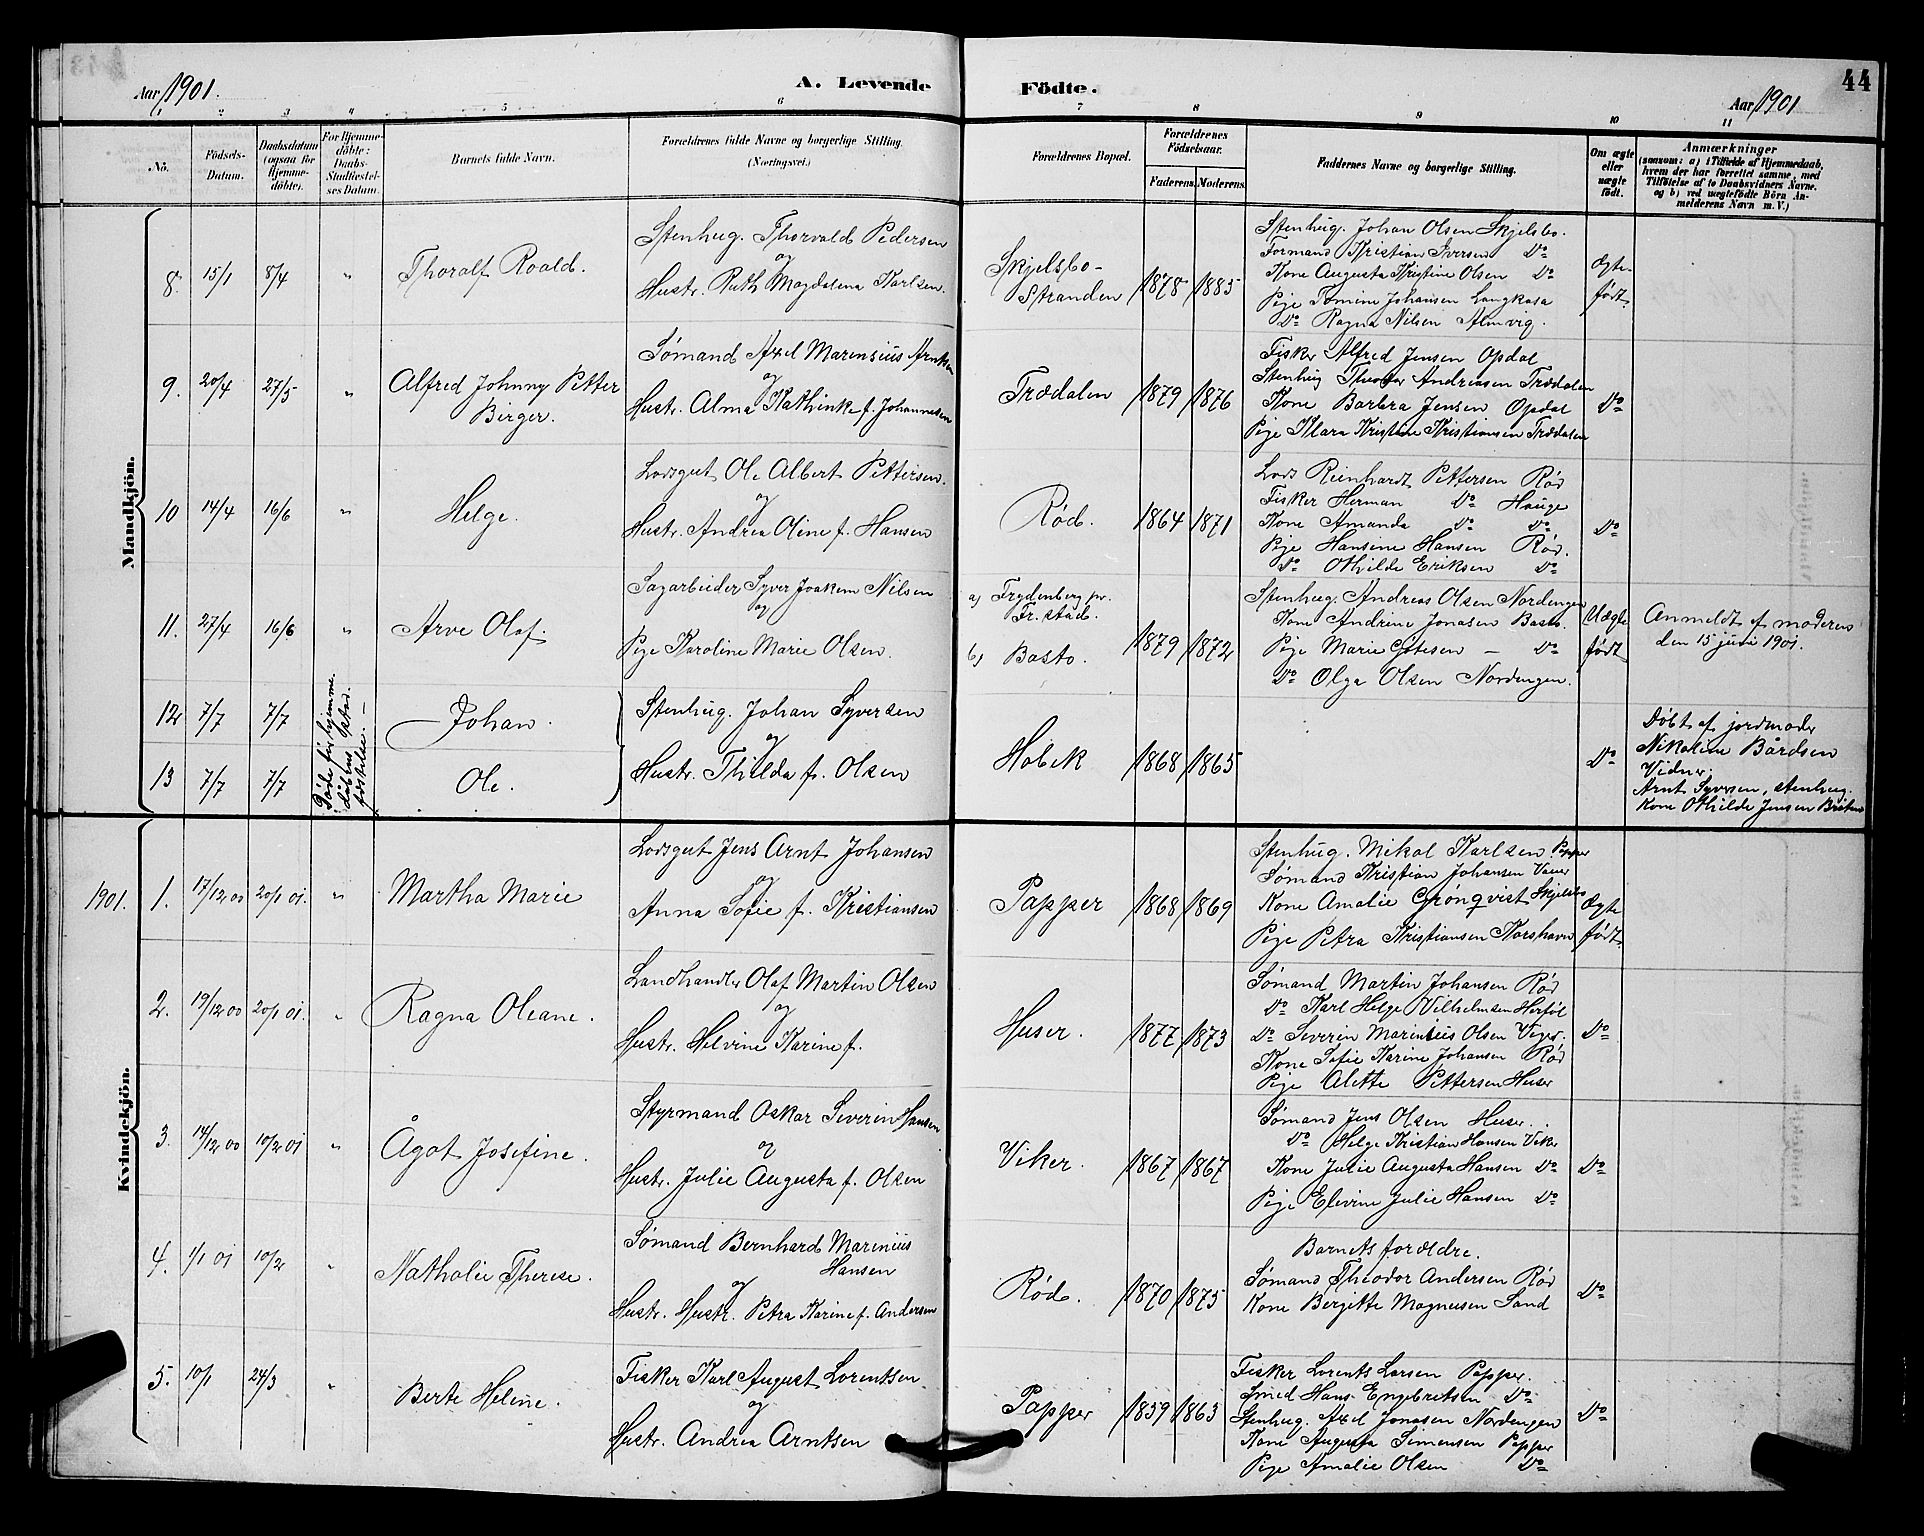 Aar 1901. A. Levende Födte. Aar 1901 44
1 2 3 4 5 6 7 8 9 10 11
No.
Födsels-Datum.
Daabsdatum (ogsaa for Hjemmedöbte).
For Hjemmedöbte: Daabs-Stadfæstelses Datum.
Barnets fulde Navn.
Forældrenes fulde Navne og borgerlige Stilling. (Næringsvei.)
Forældrenes Bopæl.
Forældrenes Födselsaar.
Faderens. Moderens.
Faddernes Navne og borgerlige Stilling.
Om ægte eller uægte födt.
Anmærkninger
(saasom: a) i Tilfælde af Hjemmedaab,
hvem der har forrettet samme, med
Tilföielse af to Daabsvidners Navne,
og b) ved uægtefödte Börn An-
melderens Navn m. V.)
Mandkjön.
8. 15/1 8/4 " Thoralf Roald.
Stenhug. Thorvald Pedersen
og
Hustr. Ruth Magdalena Karlsen.
Skjelsbo-
Stranden 1878 1885
Stenhug. Johan Olsen Skjelsbo.
Formand Kristian Iversen Do
Kone Augusta Kristine Olsen Do
Pige Tomine Johansen Langkasa
Do Ragna Nilsen Almvig.
Ægte-
født
9. 20/4 27/5 " Alfred Johnny Petter
Birger.
Sømand Axel Marensius Arntsen
og
Hustr. Alma Kathinka f. Johannesen
Trædalen 1879 1876
Fisker Alfred Jensen Opdal
Stenhug Theodor Andreasen Trædalen
Kone Barbra Jensen Opdal
Pige Klara Kristine Kristiansen Trædalen
Do
10 14/4 16/6 " Helge.
Lodsgut Ole Albert Pettersen.
og
Hustr. Andrea Oline f. Hansen
Rød. 1864 1871
Lods Reinhardt Pettersen Rød
Fisker Herman Do Hauge
Kone Amanda Do Do
Pige Hansine Hansen Rød.
Do Othilde Eriksen Do
Do
11. 27/4 16/6 " Arve Olaf.
Sagarbeider Syver Joakem Nilsen
og
Pige Karoline Marie Olsen.
a) Frydenberg pr.
Fr.stad.
b) Basto. 1879 1872
Stenhug. Andreas Olsen Nordengen
Kone Andrine Jonasen Basto.
Pige Marie Gttesen - Do
Do Olga Olsen Nordengen.
Uægte
født
Anmeldt af moderen
den 15 juni 1901.
12 7/7 7/7 Johan.
13 7/7 7/7 Ole.
Døde før hjemme.
daabens
Stenhug. Johan Syversen
og
Hustr. Thilda f. Olsen
Hobek 1868 1865
Do
Døbt af jordmoder
Nikoline Bårdsen
Vidner.
Arnt Syversen, stenhug.
Kone Othilde Jensen Bråten
Kvindekjön.
1901. 1. 17/12 00 20/1 01. " Martha Marie
Lodsgut Jens Arnt Johansen
og
Anna Sofie f. Kristiansen
Papper 1868 1869
Stenhug. Mikal Karlsen Papper
Sømand Kristian Johansen Vauer
Kone Amalie Grönqvist Skjelsbo
Pige Petra Kristiansen Korshavn
Ægte
født
2. 19/12 00 20/1 01. " Ragna Oleane.
Landhandler Olaf Martin Olsen
og
Hustr. Helvine Karine f.
Huser. 1877 1873
Sømand Martin Johansen Rød
Do Karl Helge Vilhelmsen Herføl
Do Severin Marinius Olsen Viger.
Kone Sofie Karine Johansen Rød
Pige Alette Pettersen Huser
Do
3. 14/12 00 10/2 01 " Ågot Josefine.
Styrmand Oskar Severin Hansen
og
Hustr. Julie Augusta f. Olsen
Viker. 1867 1867
Sømand Jens Olsen Huser.
Do Helge Kristian Hansen Viker
Kone Julie Augusta Hansen Do
Pige Elevine Julie Hansen Do
Do
4. 1/1 01 10/2 " Nathalie Therese.
Sømand Bernhard Marinius
Hansen
og
Hustr. Hustr. Petra Karine f. Andersen
Rød. 1870 1875
Barnets forældre.
Sømand Theodor Andersen Rød
Kone Bergitte Magnusen Sand
Do
5. 10/1 24/3 " Berte Helene.
Fisker Karl August Lorentsen
og
Hustr. Andrea Arntsen
Papper 1859 1863
Fisker Lorents Larsen Papper.
Smed Hans Engebretsen Do
Stenhug. Axel Jonasen Nordengen
Kone Augusta Simensen Papper
Pige Amalie Olsen Do
Do